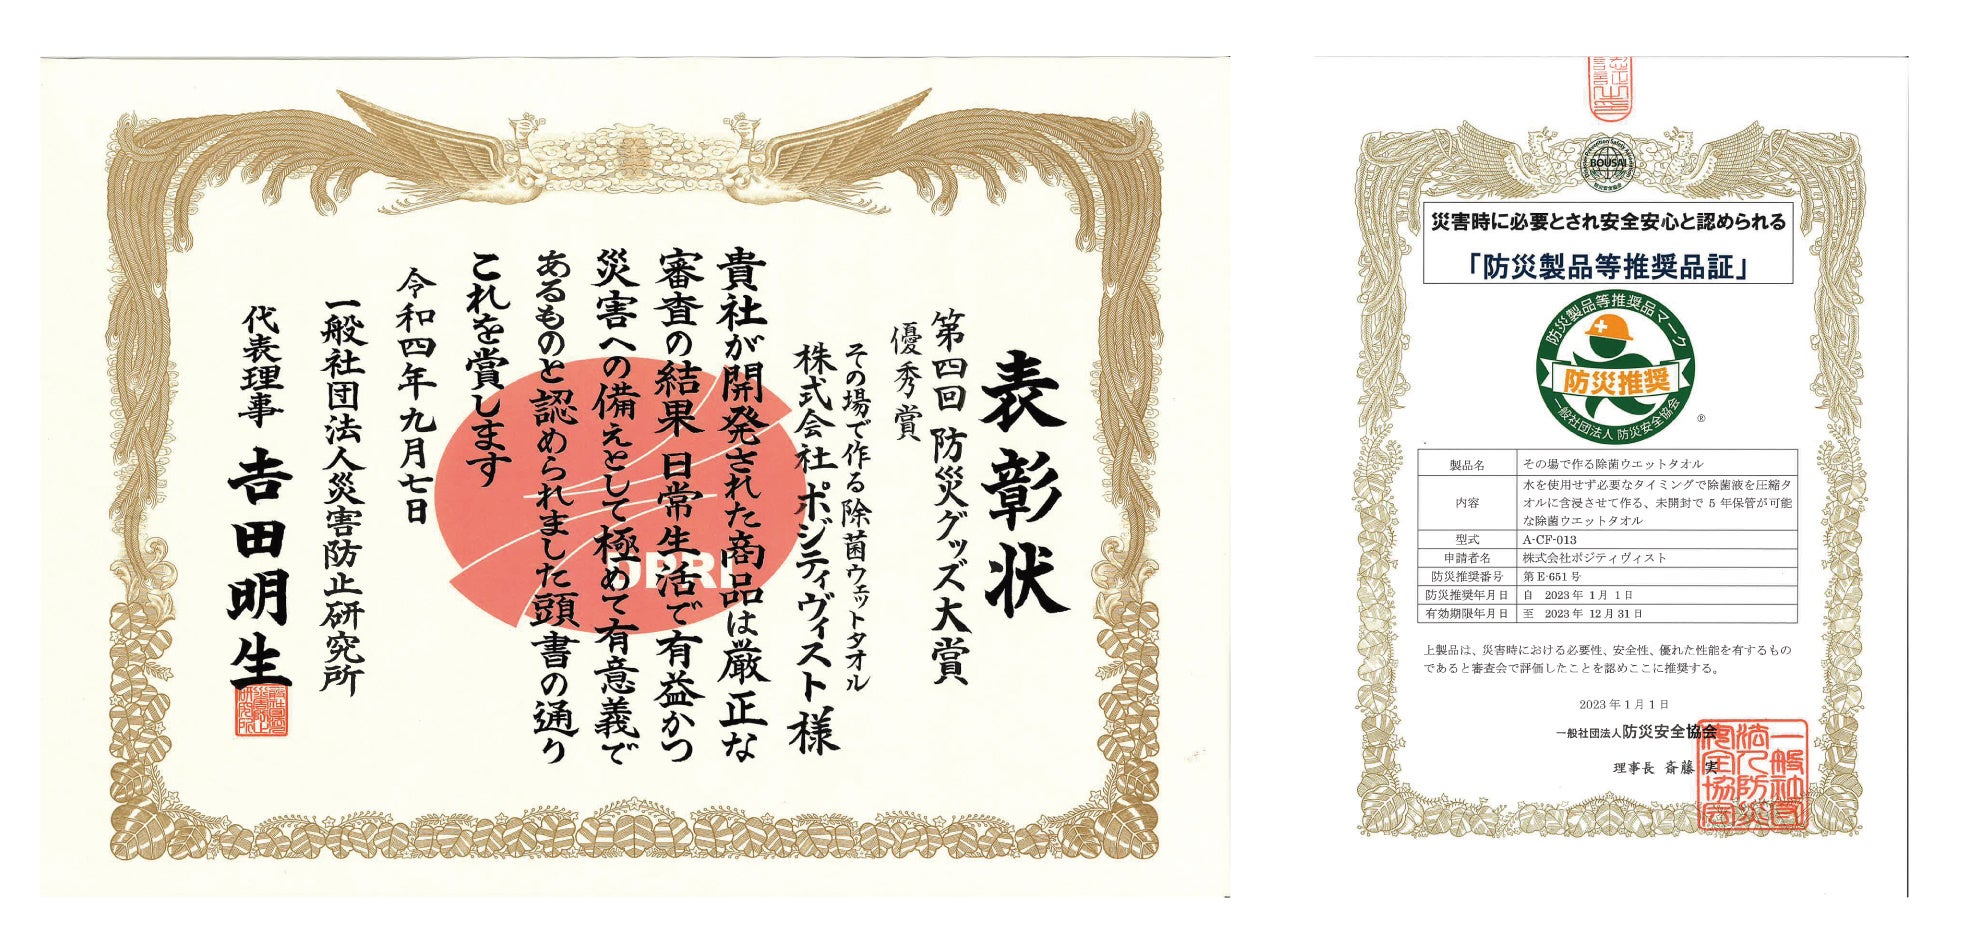 表彰状
第四回 防災グッズ大賞
優秀賞
その場で作る除菌ウェットタオル
株式会社ポジティヴィスト様
貴社が開発された商品は厳正な
審査の結果 日常生活で有益かつ
災害への備えとして極めて有意義で
あるものと認められました頭書の通り
これを賞します
令和四年九月七日
一般社団法人災害防止研究所
代表理事 吉田明生
BOUSAI
災害時に必要とされ安全安心と認められる
「防災製品等推奨品証」
防災製品等推奨品マーク
防災推奨
一般社団法人 防災安全協会
®
製品名 その場で作る除菌ウエットタオル
内容 水を使用せず必要なタイミングで除菌液を圧縮タ
オルに含浸させて作る、未開封で 5 年保管が可能
な除菌ウエットタオル
型式 A-CF-013
申請者名 株式会社ポジティヴィスト
防災推奨番号 第 E-651 号
防災推奨年月日 自 2023 年 1 月 1 日
有効期限年月日 至 2023 年 12 月 31 日
上製品は、災害時における必要性、安全性、優れた性能を有するもの
であると審査会で評価したことを認めここに推奨する。
2023 年 1 月 1 日
一般社団法人防災安全協会
理事長 斎藤 実